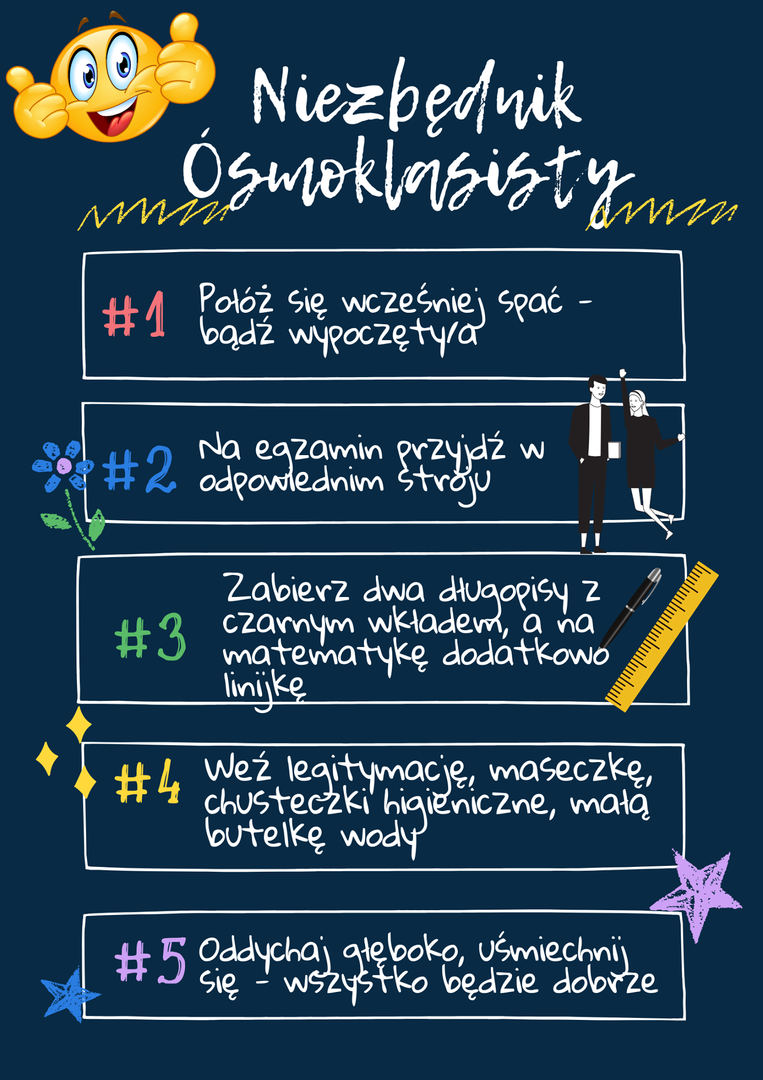 Niezbędnik
Ósmoklasisty
#1
Połóż się wcześniej spać -
bądź wypoczęty/a
#2
Na egzamin przyjdź w
odpowiednim stroju
#3
Zabierz dwa długopisy z
czarnym wkładem, a na
matematykę dodatkowo
linijkę
#4
Weź legitymację, maseczkę,
chusteczki higieniczne, małą
butelkę wody
#5
Oddychaj głęboko, uśmiechnij
się - wszystko będzie dobrze